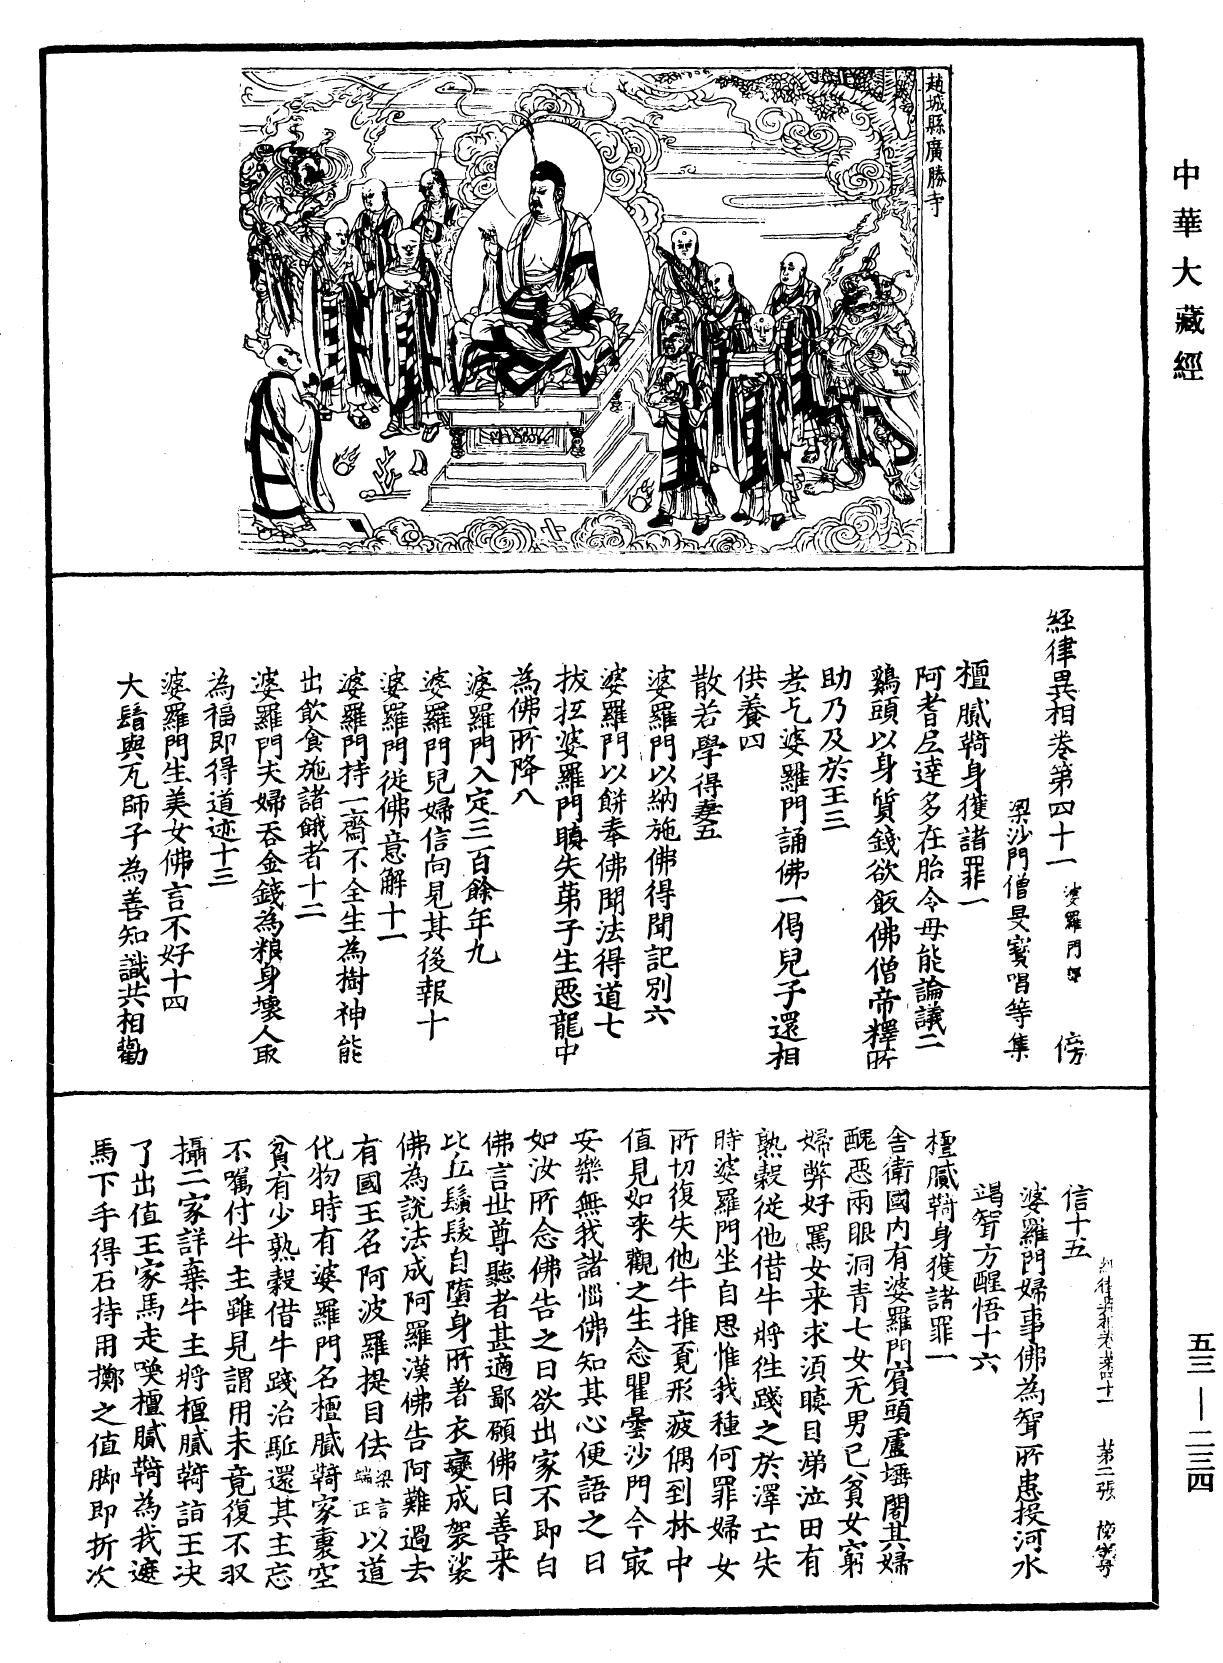 中華大藏經
趙城縣廣勝寺
經律異相卷第四十一 婆羅門部 傍
梁沙門僧旻寶唱等集
檀膩䩭身獲諸罪一
阿耆尼達多在胎令母能論議二
鷄頭以身質錢欲飯佛僧帝釋所
助乃及於王三
老乞婆羅門誦佛一偈兒子還相
供養四
散若學得妻五
婆羅門以納施佛得聞記別六
婆羅門以餅奉佛聞法得道七
拔抵婆羅門瞋失弟子生惡龍中
為佛所降八
婆羅門入定三百餘年九
婆羅門兒婦信向見其後報十
婆羅門從佛意解十一
婆羅門持一齋不全生為樹神能
出飲食施諸餓者十二
婆羅門夫婦吞金錢為粮身壞人取
為福即得道迹十三
婆羅門生美女佛言不好十四
大䯻與凡師子為善知識共相勸
信十五
經律異相卷第四十一 第二張 傍字号
婆羅門婦事佛為聟所患投河水
竭聟方醒悟十六
檀膩䩭身獲諸罪一
舍衛國內有婆羅門賓頭盧埵闍其婦
醜惡兩眼洞青七女无男已貧女窮
婦弊好罵女来求湏瞋目涕泣田有
熟穀從他借牛將往踐之於澤亡失
時婆羅門坐自思惟我種何罪婦女
所切復失他牛推覓形疲偶到林中
值見如来觀之生念瞿曇沙門今㝡
安樂無我諸惱佛知其心便語之曰
如汝所念佛告之曰欲出家不即白
佛言世尊聽者甚適鄙願佛曰善来
比丘鬚髮自墮身所著衣變成袈裟
佛為說法成阿羅漢佛告阿難過去
有國王名阿波羅提目佉梁言端正以道
化物時有婆羅門名檀膩䩭家裏空
貧有少熟穀借牛踐治駈還其主忘
不囑付牛主雖見謂用未竟復不収
攝二家詳棄牛主將檀膩䩭詣王决
了出值王家馬走喚檀膩䩭為我遮
馬下手得石持用擲之值脚即折次
五三—二三四